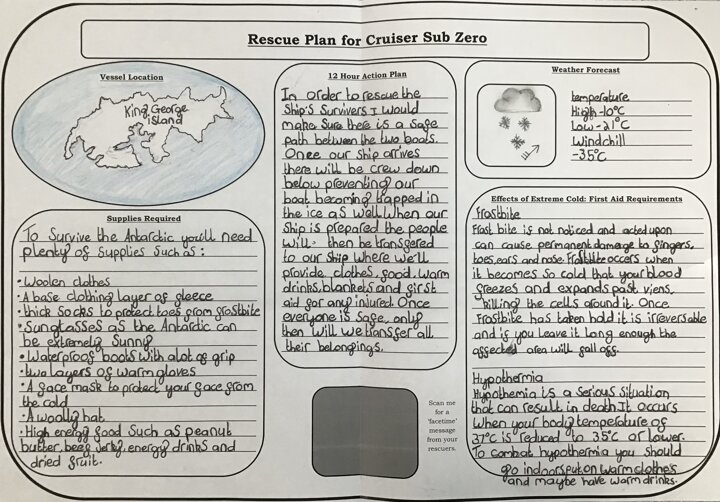 Rescue Plan for Cruiser Sub Zero
Vessel Location
King George
island
Supplies Required
To Survive the Antardic you'll need
plenty of Supplies Such as :
• Woolen clothes
• A base clothing layer of fleece
• thick Socks to protect toes from frostbite
• Sunglasses as the Antardic can
be extremely Sunny
• Waterproof boots with alot of grip
• two layers of warm gloves
• A face mask to protect your face from
the cold
• A woolly hat
• High energy food Such as peanut
butter, beef Jerky, energy drinks and
dried fruit.
12 Hour Action Plan
In order to rescue the
Ship's Survivers I would
make Sure there is a Safe
path between the two boats.
Once our Ship arrives
there will be crew down
below preventing our
boat becoming trapped in
the ice as well. When our
Ship is prepared the people
will then be transfered
to our Ship where we'll
provide clothes, food, warm
drinks, blankets and first
aid for any injured. Once
everyone is Safe, only
then will we transfer all
their belongings.
Scan me
for a
'facetime'
message
from your
rescuers.
Weather Forecast
temperature
High -10°C
Low -21°C
Windchill
-35°C
Effects of Extreme Cold: First Aid Requirements
Frostbite
Frost bite is not noticed and acted upon
can cause permanent damage to fingers,
toes, ears and nose. Frostbite occurs when
it becomes so cold that your blood
freezes and expands past viens,
killing the cells around it. Once
Frostbite has taken hold it is irreversable
and if you leave it long enough the
affected area will fall off.
Hypothermia
Hypothemia is a Serious Situation
that can result in death. It occurs
when your body temperature of
37°C is reduced to 35°C or lower.
To combat hypothermia you Should
go indoors, put on warm clothes
and maybe have warm drinks.